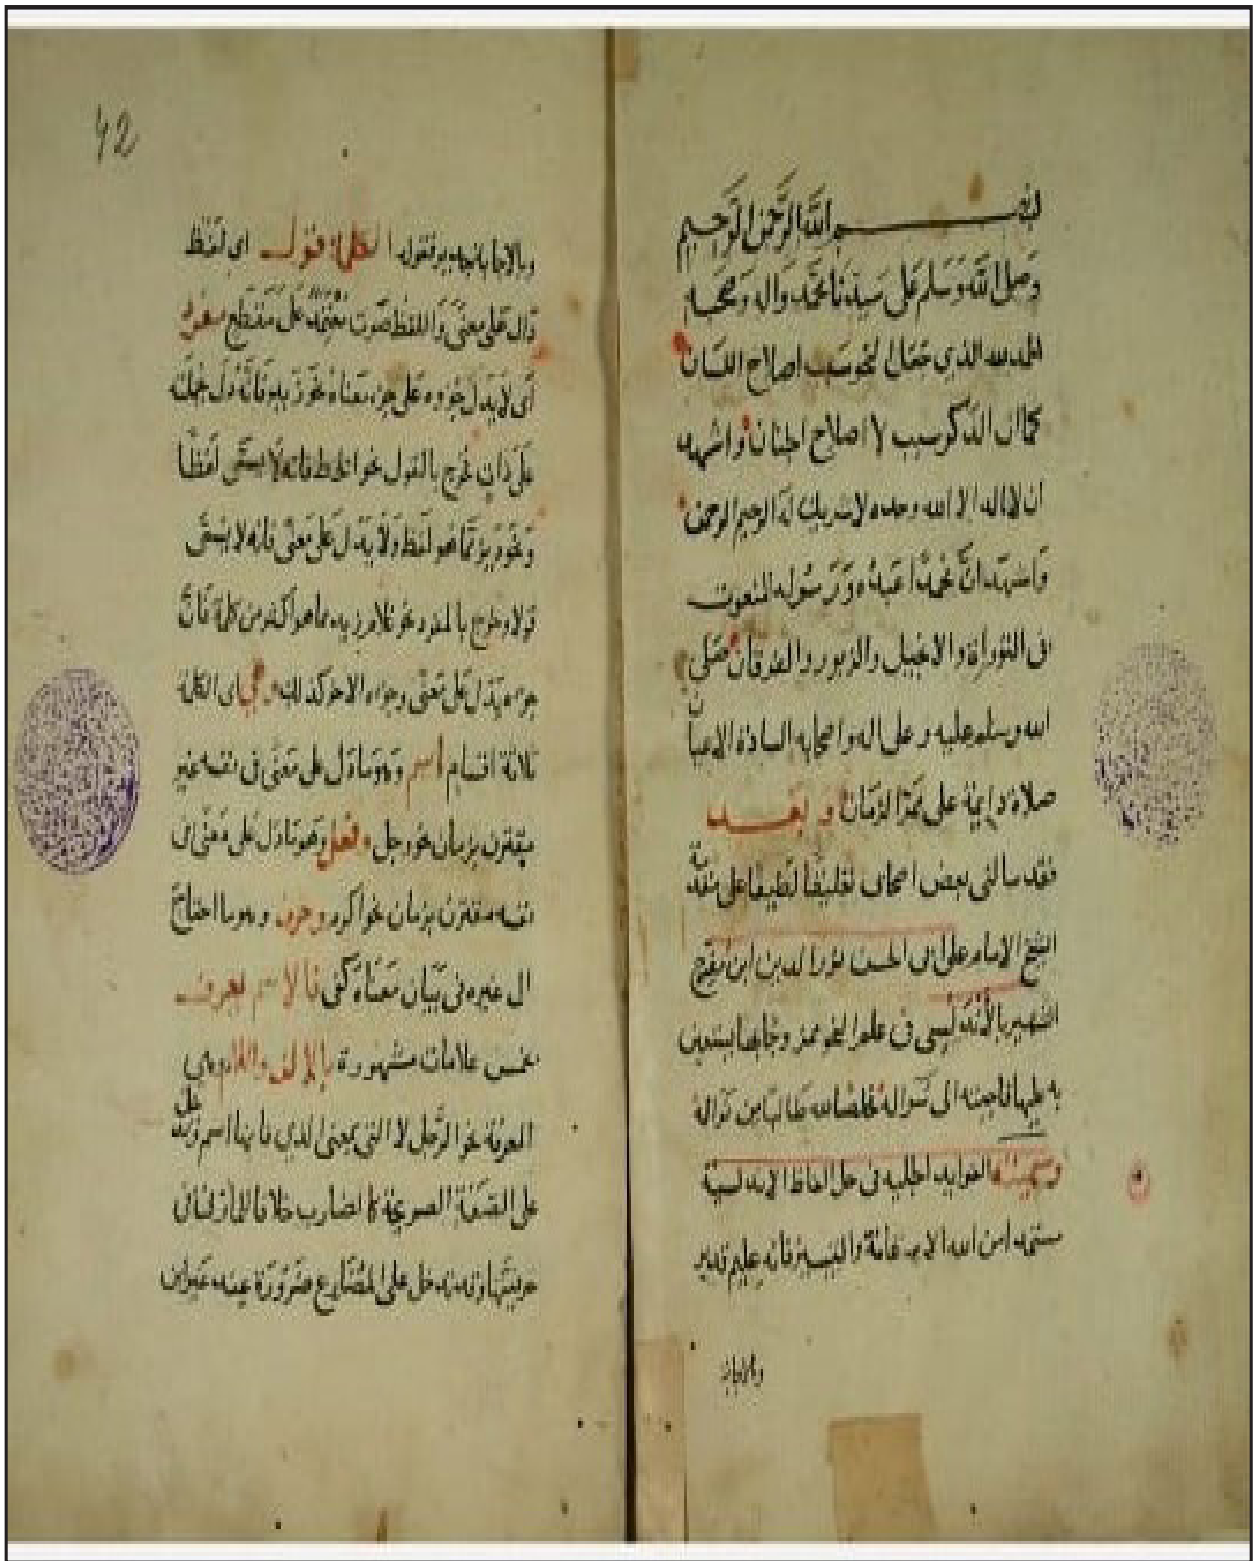 بسم الله الرحمن الرحيم
وصلى الله وسلم على سيدنا محمد واله وصحبه
الحمد لله الذي جعل النحو سبب اصلاح اللسان
كما ان الذكر سبب لاصلاح الجنان واشهد
ان لا اله الا الله وحده لا شريك له الرحيم الرحمن
واشهد ان محمدا عبده ورسوله المنعوت
في التوراة والانجيل والزبور والفرقان صلى
الله وسلم عليه وعلى اله واصحابه السادة الاعيان
صلاة دايمة على ممر الزمان وبعد
فقد سالني بعض اصحاب تعليقا لطيفا على مقدمة
الشيخ الامام علي ابي الحسن نور الدين ابن مفرح
الشهير بالأندلسي في علم النحو يستعين
به عليها فاجبته الى سواله مخلصا لله طالبا من نواله
وسميته الفوايد الجلية في حل الفاظ الاندلسية
مستمدا من الله الاعانة والتيسير فانه عليم قدير
وبالاجابة
42
وبالاجابة جدير فقوله الكلمة قول اي لفظ
دال على معنى واللفظ صوت معتمد على مقطع مفرد
أى لا يدل جزوه على جزء معناه نحو زيد فانه دل جملته
على ذات خرج بالقول نحو الخط فانه لا يسمى لفظا
ونحو ديز مما هو لفظ ولا يدل على معنى فانه لا يسمى
قولا وخرج بالمفرد نحو غلام زيد مما هو اكثر من كلمة فان
جزءه يدل على معنى وجزءه الاخر كذلك وهي اى الكلمة
ثلاثة اقسام اسم وهو ما دل على معنى في نفسه غير
مقترن بزمان نحو رجل وفعل وهو ما دل على معنى في
نفسه مقترن بزمان نحو اكرم وحرف وهو ما احتاج
الى غيره في بيان معناه كفي فالاسم يعرف
بخمس علامات مشهورة بالالف واللام وهي
المعرفة نحو الرجل لا التي بمعنى الذي فانها اسم وتدخل
على الصفة الصريحة كالضارب خلافا للمازني في
حرفيتها وقد تدخل على المضارع ضرورة عند غير ابن